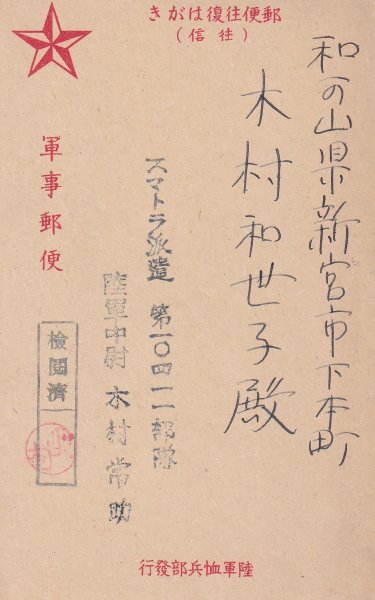 郵便往復はがき
(往信)
和可山県新宮市下本町
木村和世子殿
スマトラ派遣 第一〇四一一部隊
陸軍中尉 木村常助
軍事郵便
檢閲濟
陸軍恤兵部發行